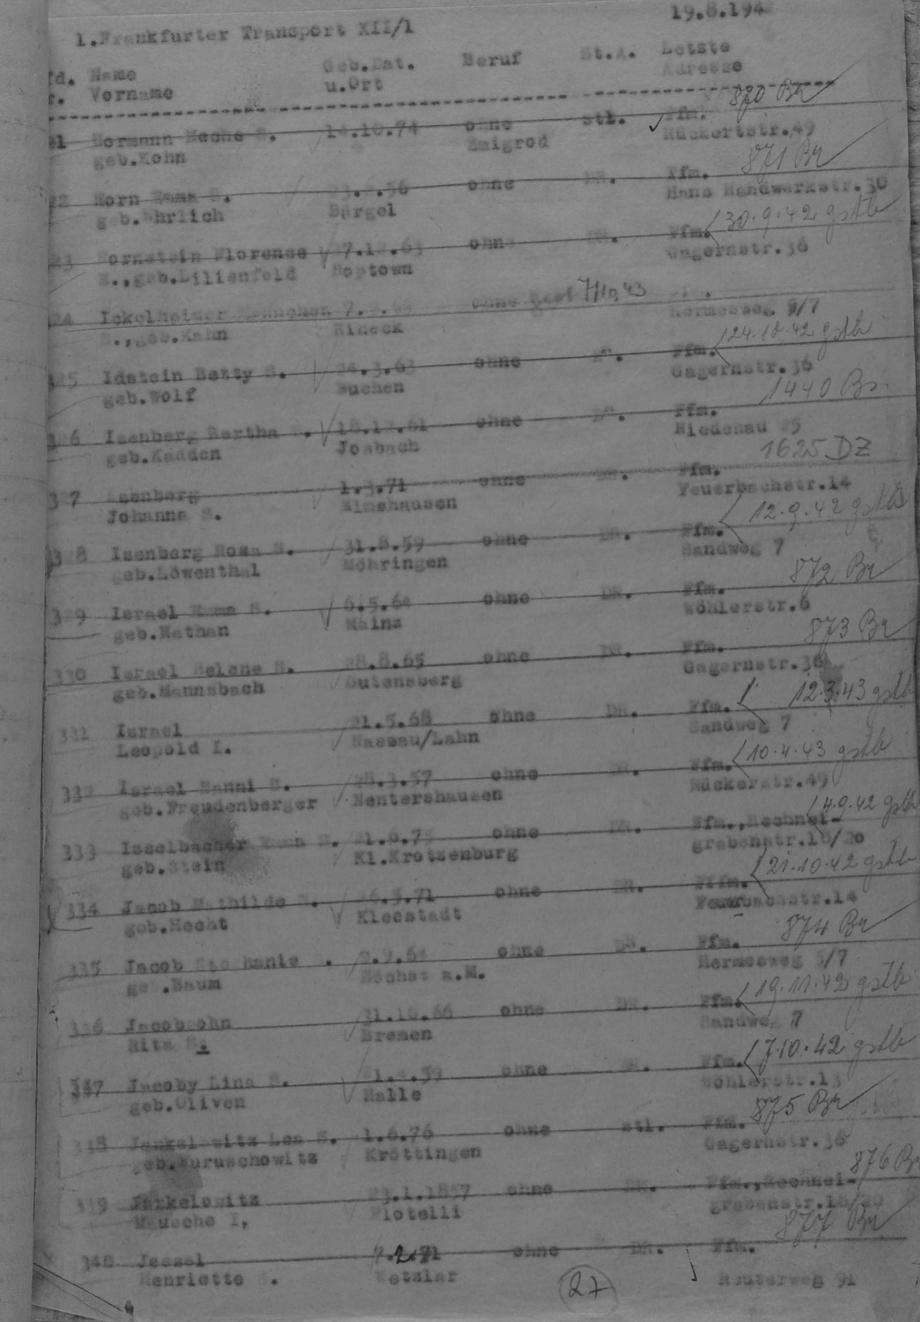 1.Frankfurter Transport XII/1 19.8.1942
fd. Name Geb.Dat. Beruf St.A. Letzte
r. Vorname u.Ort Adresse
21 Hormann Neche S. 14.10.74 ohne stl. Ffm. 870 Br
geb.Kohn Zmigrod Rückertstr.49
22 Horn Emma S. ohne DR. Ffm. 871 Br
geb.Ehrlich Bürgel Hans Handwerkstr.30
23 Hornstein Florense 27.12.63 ohne DR. Ffm. 30.9.42 gstb
S.,geb.Lilienfeld Hoptown Gagernstr.36
24 Ickelheimer ohne gest 7/10.43 Ffm.
S.,geb.Kahn Rineck Hermesweg 5/7
325 Idstein Betty S. 24.3.63 ohne Ffm. 24.10.42 gstb
geb.Wolf Buchen Gagernstr.36
326 Isenberg Bertha S. 18.12.61 ohne Ffm. 1440 Br.
geb.Kadden Josbach Niedenau 25
327 Isenberg 1.3.71 ohne DR. Ffm. 1625 DZ
Johanna S. Elmshausen Feuerbachstr.14
328 Isenberg Rosa S. 31.8.59 ohne DR. Ffm. 12.9.42 gstb
geb.Löwenthal Möhringen Sandweg 7
329 Israel Emma S. 6.5.64 ohne DR. Ffm. 872 Br
geb.Nathan Mainz Wöhlerstr.6
330 Israel Helene S. 28.8.65 ohne DR. Ffm. 873 Br
geb.Mannsbach Gutensberg Gagernstr.36
331 Israel 21.5.68 ohne DR. Ffm. 12.3.43 gstb
Leopold I. Nassau/Lahn Sandweg 7
332 Israel Nanni S. 28.3.57 ohne DR. Ffm. 10.4.43 gstb
geb.Freudenberger Nentershausen Rückerstr.49
333 Isselbacher Emma S. 21.6.75 ohne DR. Ffm.,Rechnei- 4.9.42 gstb
geb.Stein Kl.Krotzenburg grabenstr.18/20
334 Jacob Mathilde S. 26.5.71 ohne DR. Ffm. 21.10.42 gstb
geb.Hecht Kleestadt Feuerbachstr.14
335 Jacob Stephanie S. 2.9.64 ohne DR. Ffm. 874 Br
geb.Baum Höchst a.M. Hermesweg 5/7
336 Jacobsohn 31.10.66 ohne DR. Ffm. 19.11.42 gstb
Rita S. Bremen Sandweg 7
347 Jacoby Lina S. ohne DR. Ffm. 7.10.42 gstb
geb.Oliven Halle Wöhlerstr.13
348 Jankelowitz Lea S. 1.6.76 ohne stl. Ffm. 875 Br
geb.Buruschowitz Kröttingen Gagernstr.36
339 Jankelowitz 23.1.1857 ohne DR. Ffm.,Rechnei- 876 Br
Mausche I, Plotelli grabenstr.18/20
340 Jessel 7.2.71 ohne DR. Ffm. 877 Br
Henriette S. Wetzlar Reuterweg 91
27